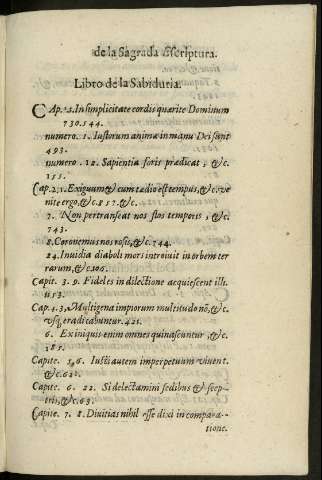 de la Sagrada Escriptura.
Libro de la Sabiduria.
CAp. 1. In simplicitate cordis quærite Dominum
730.544.
numero. 1. Iustorum animæ in manu Dei sunt
493.
numero. 12. Sapientia foris prædicat, &c.
155.
Cap. 2, 1. Exiguum & cum tædio est tempus, &c. ve
nite ergo, &c. 817. &c.
7. Non pertranseat nos flos temporis, &c.
743.
8. Coronemus nos rosis, &c. 744.
24. Invidia diaboli mors introiuit in orbem ter
rarum, &c. 106.
Capit. 3. 9. Fideles in dilectione acquiescent illi.
Cap. 4. 3, Multigena impiorum multitudo nō, &c.
vsq; eradicabuntur. 421.
6. Ex iniquis enim omnes qui nascuntur, &c.
385.
Capite. 5, 6. Iusti autem imperpetuum viuent.
&c. 62.
Capite. 6. 22. Si delectamini sedibus & scep-
tris, &c. 63.
Capite. 7. 8. Diuitias nihil esse dixi in compara-
tione.